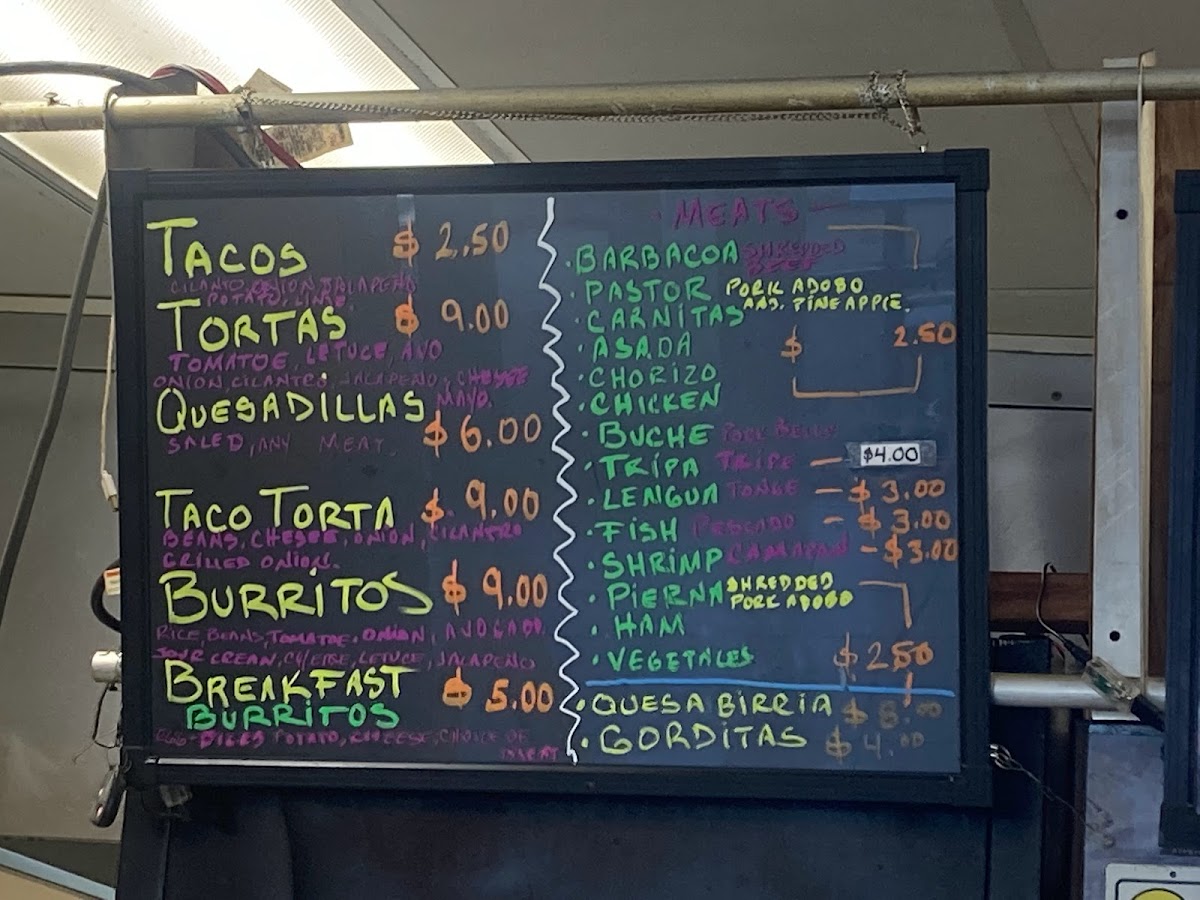 TACOS $ 2.50
CILANTO, ONION, JALAPEÑO
POTATO, LIME.
TORTAS $ 9.00
TOMATOE, LETUCE, AVO
ONION, CILANTRO, JALAPEÑO, CHEESE
MAYO.
QUESADILLAS $ 6.00
SALED, ANY MEAT.
TACO TORTA $ 9.00
BEANS, CHEESE, ONION, CILANTRO
GRILLED ONION.
BURRITOS $ 9.00
RICE, BEANS, TOMATOE, ONION, AVOCADO
SOUR CREAN, CHEESE, LETUCE, JALAPEÑO
BREAKFAST $ 5.00
BURRITOS
EGG - DICES POTATO, CHEESE, CHOICE OF
MEAT
· MEATS —
· BARBACOA SHREDDED
BEEF
· PASTOR PORK ADOBO
AND. PINEAPPLE.
· CARNITAS
· ASADA $ 2.50
· CHORIZO
· CHICKEN
· BUCHE PORK BELLY
· TRIPA TRIPE — $4.00
· LENGUA TONGE — $ 3.00
· FISH PESCADO — $ 3.00
· SHRIMP CAMARON — $ 3.00
· PIERNA SHREDDED
PORK ADOBO
· HAM
· VEGETALES $ 2.50
· QUESA BIRRIA $ 8.00
· GORDITAS $ 4.00